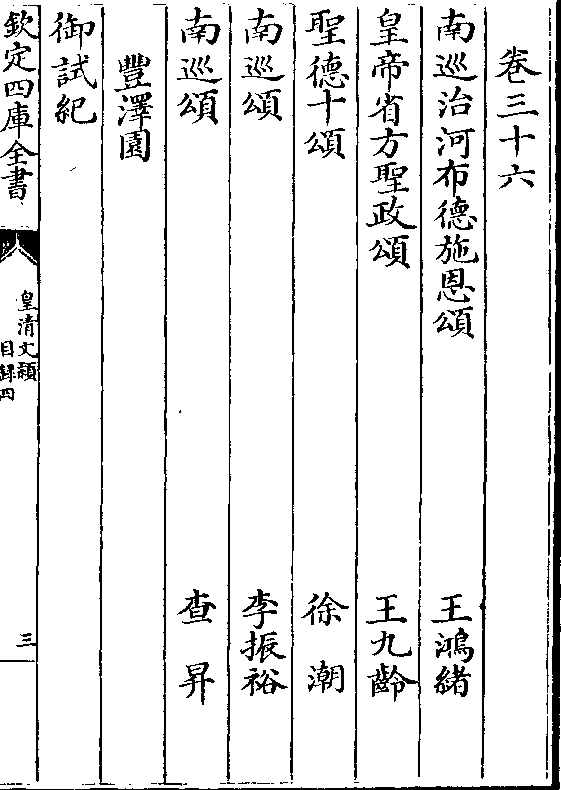 卷三十六
南巡治河布德施恩頌 王鴻緒
皇帝省方聖政頌 王九齡
聖德十頌 徐潮
南巡頌 李振裕
南巡頌 查昇
豐澤園
御試紀
欽定四庫全書
皇清文穎
目錄四
三